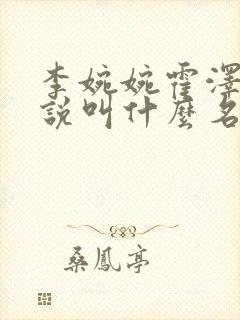 李婉婉霍澤
說叫什麼名
桑鳳亭